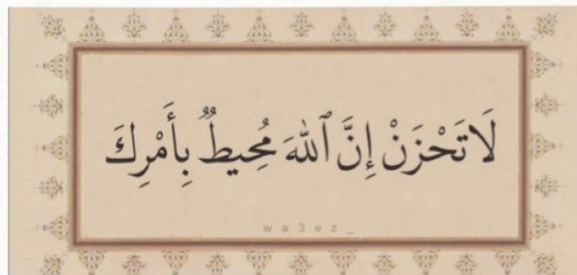 لَا تَحْزَنْ إِنَّ ٱللَّهَ مُحِيطٌ بِأَمْرِكَ
wa3ez_